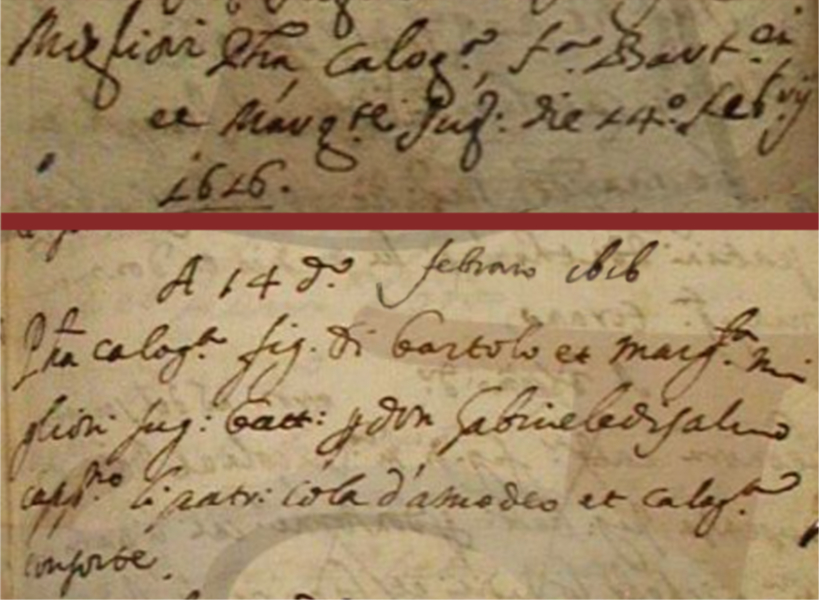 Migliori Phã Calog.ª f.ª Bart.ei
et Marg.te Jug: die 14.º feb.vij
1616.
A 14 d.º febraro 1616
Phã calog.ra fig. di bartolo et marg.ta mi
gliori Jug: batt: p don Gabriele di salvo
capp.no li patri: cola d'amodeo et calog.ra
consorte.